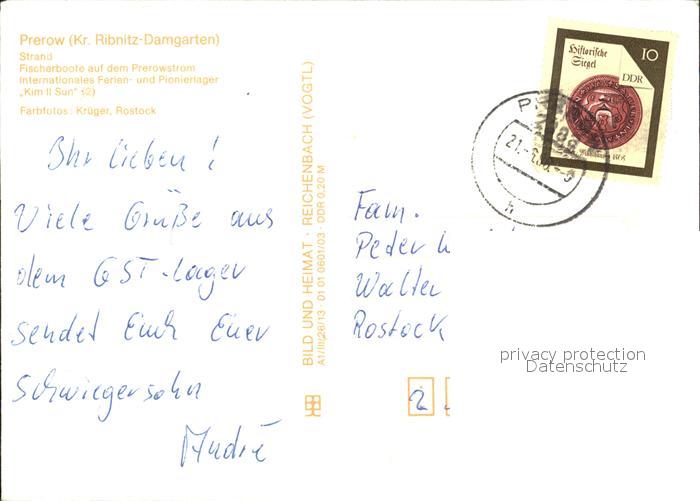 Prerow (Kr. Ribnitz-Damgarten)
Strand
Fischerboote auf dem Prerowstrom
Internationales Ferien- und Pionierlager
„Kim Il Sun" (2)
Farbfotos: Krüger, Rostock
Ihr lieben!
Viele Grüße aus
dem GST-Lager
sendet Euch Euer
Schwiegersohn
André
BILD UND HEIMAT · REICHENBACH (VOGTL)
A1/III/26/13 · 01 01 0601/03 · DDR 0,20 M
Historische
Siegel
10
DDR
Fam.
Peter
Walter
Rostock
2
privacy protection
Datenschutz